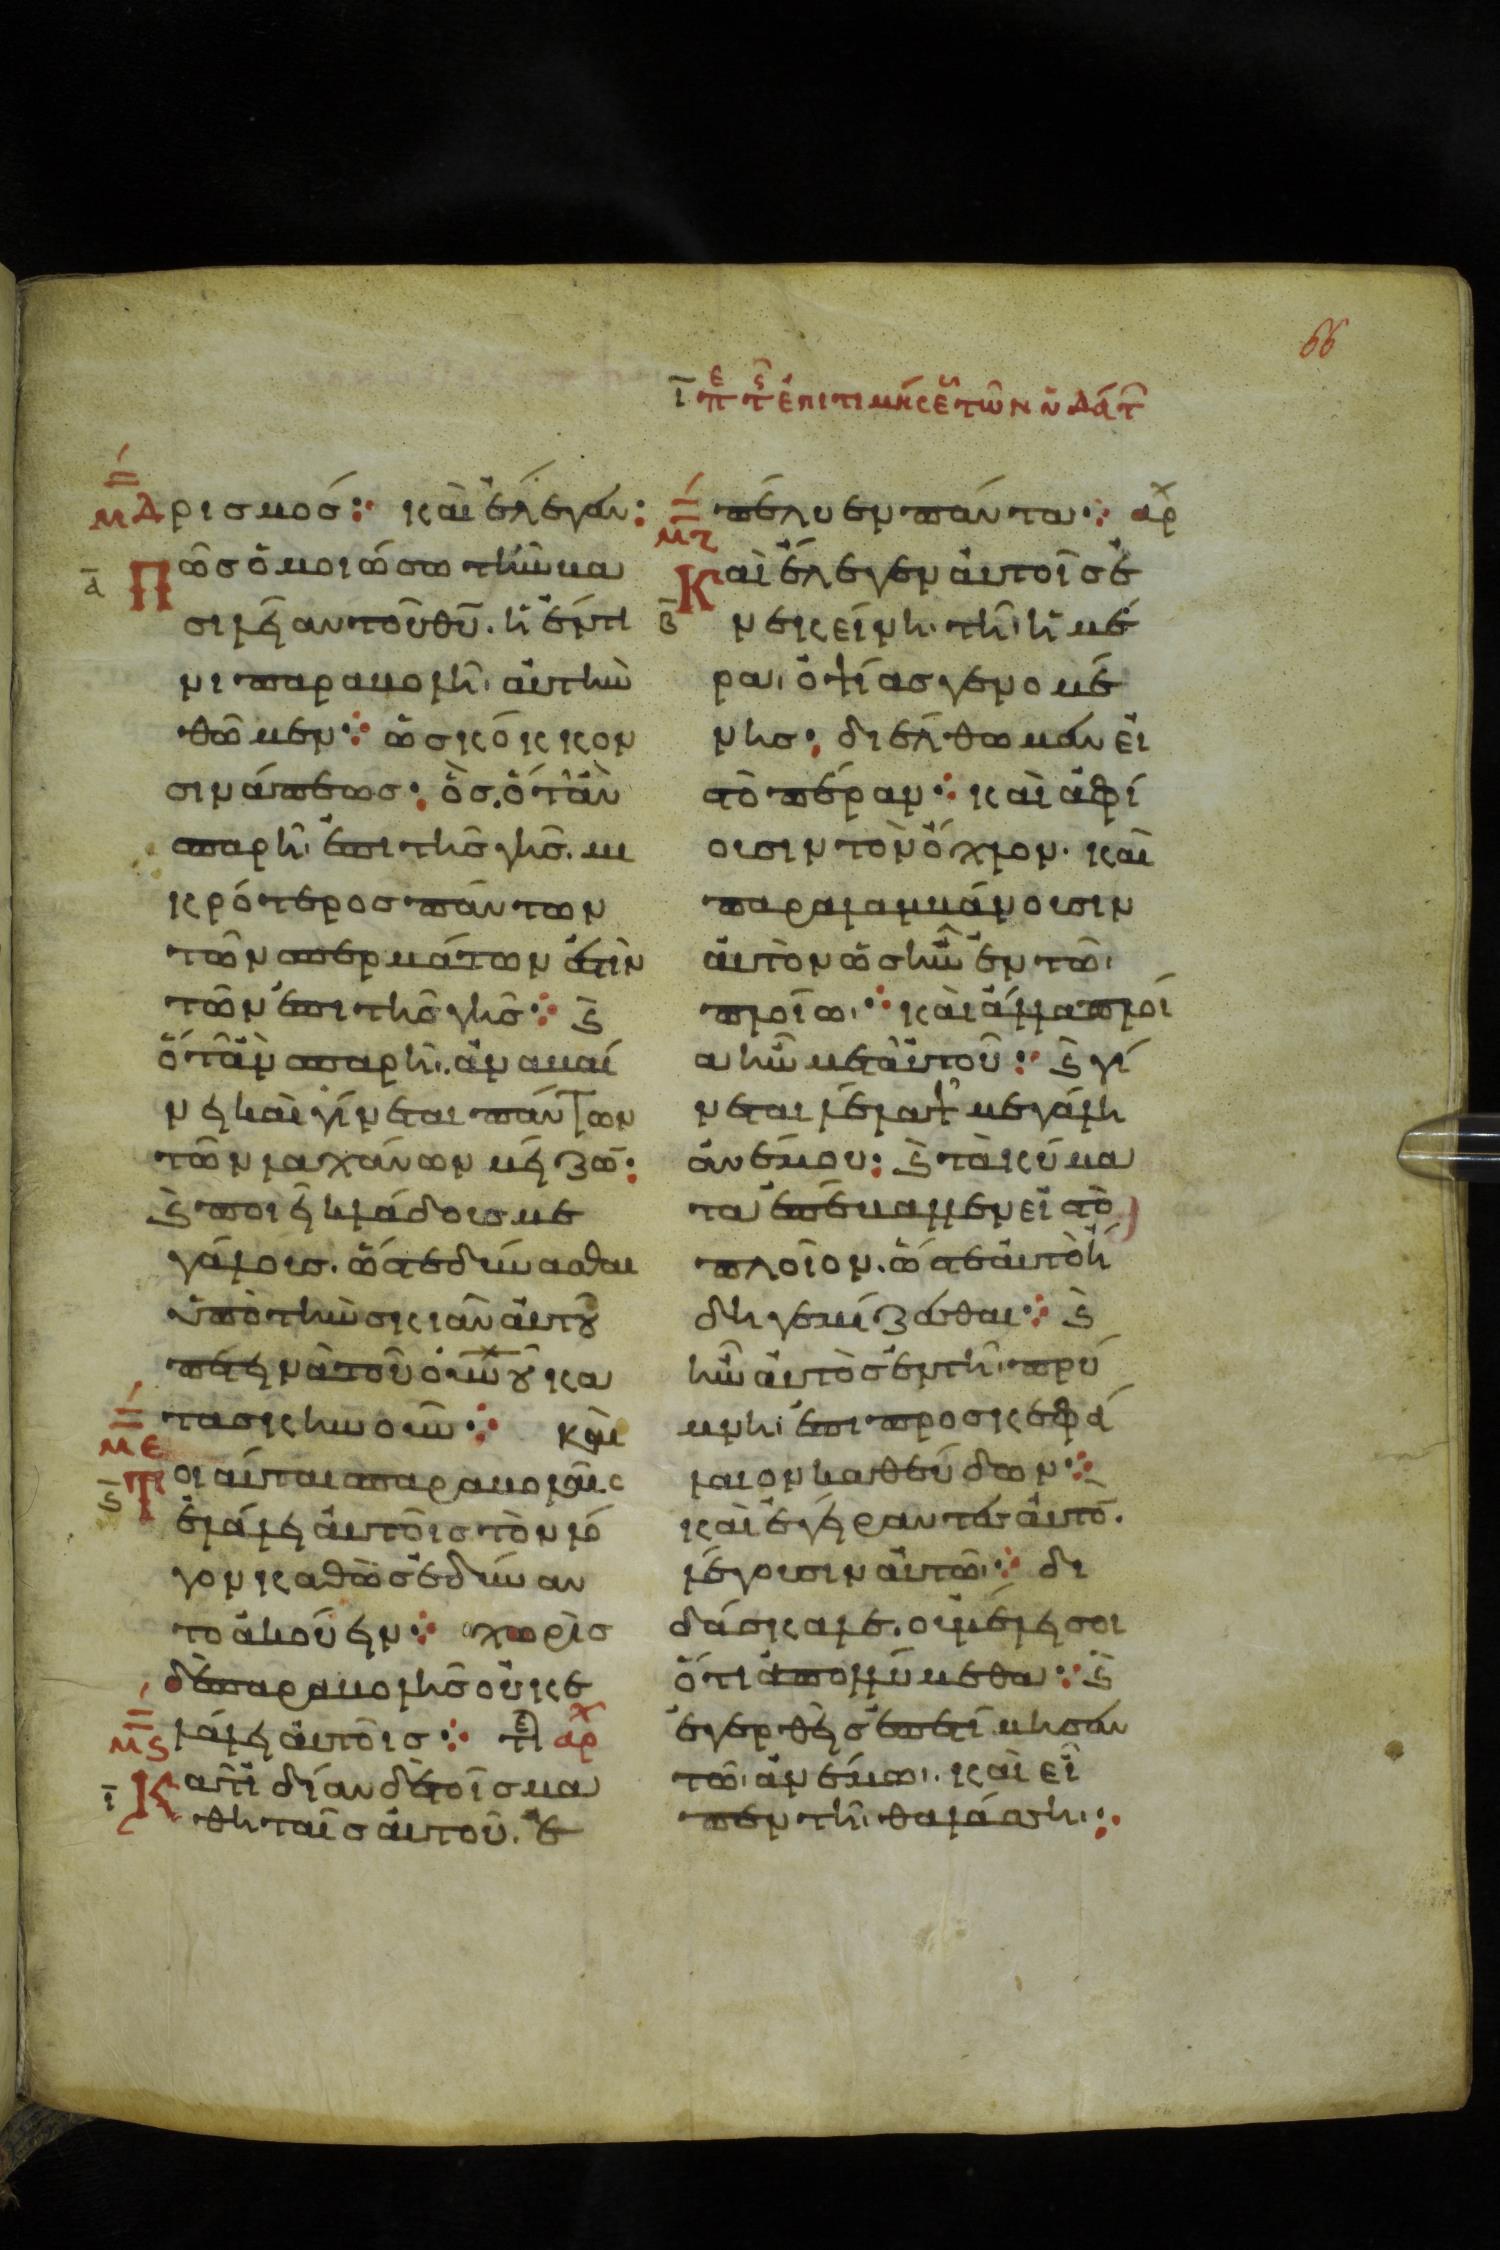 66
ῑ πε τς ἐπιτιμήσεως τῶν ὑδάτ
μδ
ρισμόσ: καὶ ἔλεγαν:
ᾱ Πῶσ ὁμοιώσω τὴν βα
σιλείαν τοῦ θῦ. ἢ ἐν τί
νι παραβολῆ αὐτὴν
θῶμεν: ὡσ κόκκον
σινάπεωσ: ὃσ ὅταν
σπαρῆ ἐπι τῆσ γῆσ. μι
κρότεροσ πάντων
τῶν σπερμάτων ἐστὶν
τῶν ἐπι τῆσ γῆσ: ϗ
ὅταν σπαρῆ. ἀναβαί
νει καὶ γίνεται πάντων
τῶν λαχάνων μείζω:
ϗ ποιεῖ κλάδουσ με
γάλουσ. ὥστε δύνασθαι
ὑπὸ τὴν σκιὰν αὐτοῦ
πετεινὰ τοῦ οὐνοῦ κα
τασκηνοῦν: κὲ
με
ς̄ Τοιαύταισ παραβολαῖσ
ἐλάλει αὐτοῖσ τὸν λό
γον καθὼσ ἐδύναν
το ἀκούειν: χωρὶσ
δὲ παραβολῆσ οὐκ ἐ
λάλει αὐτοῖσ: τε αρχ
μς
ῑ Κατ ἰδίαν δὲ τοῖσ μα
θηταῖσ αὐτοῦ. ἐ
πέλυεν πάντα: αρχ
μζ
β̄ Καὶ ἔλεγεν αὐτοῖσ ἐ
ν ἐκείνη τῆ ἡμέ
ρα ὀψίασ γενομέ
νησ: διέλθωμεν εἰ
στὸ πέραν: καὶ ἀφί
ουσιν τὸν ὄχλον. καὶ
παραλαμβάνουσιν
αὐτὸν ὡσ ἦν ἐν τῶ
πλοίω: καὶ ἄλλα πλοῖ
α ἦν μετ αὐτοῦ: ϗ γί
νεται λέλαψ μεγάλη
ἀνέμου: ϗ τὰ κύμα
τα ἐπέβαλλεν εἰσ τὸ
πλοῖον. ὥστε αὐτὸ ἤ
δη γεμίζεσθαι: ϗ
ἦν αὐτὸσ ἐν τῆ πρύ
μνη ἐπι προσκεφά
λαιον καθεύδων:
καὶ ἐγείραντεσ αὐτὸ.
λέγουσιν αὐτῶ: δι
δάσκαλε. οὐ μέλει σοι
ὅτι ἀπολλύμεθα: ϗ
ἐγερθεὶσ ἐπετίμησεν
τῶ ἀνέμω. καὶ εἶ
πεν τῆ θαλάσση: